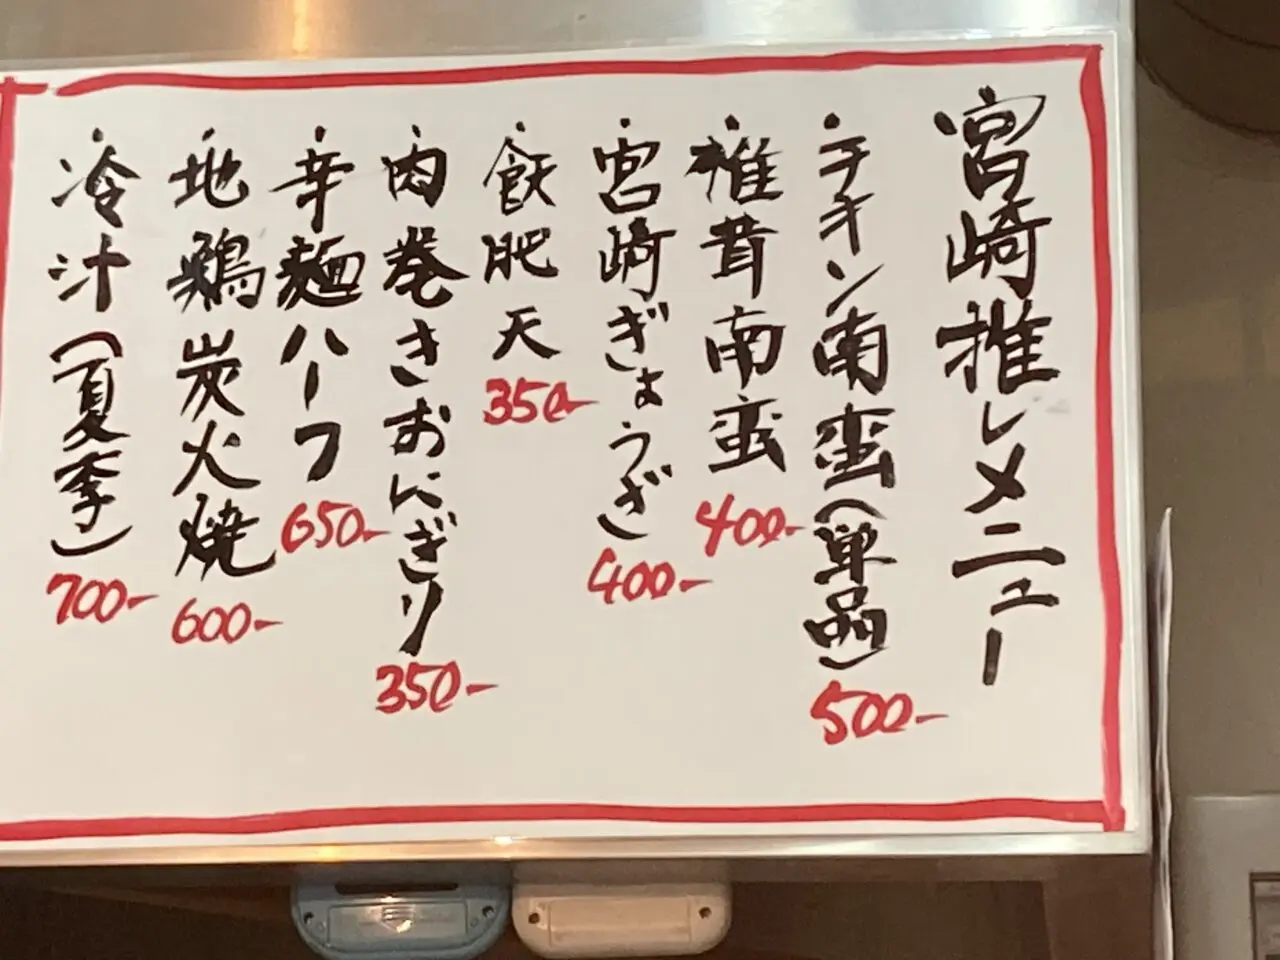 宮崎推しメニュー
・チキン南蛮(単品) 500-
・椎茸南蛮 400-
・宮崎ぎょうざ 400-
・飫肥天 350-
・肉巻きおにぎり 350-
・辛麺ハーフ 650-
・地鶏炭火焼 600-
・冷汁(夏季) 700-